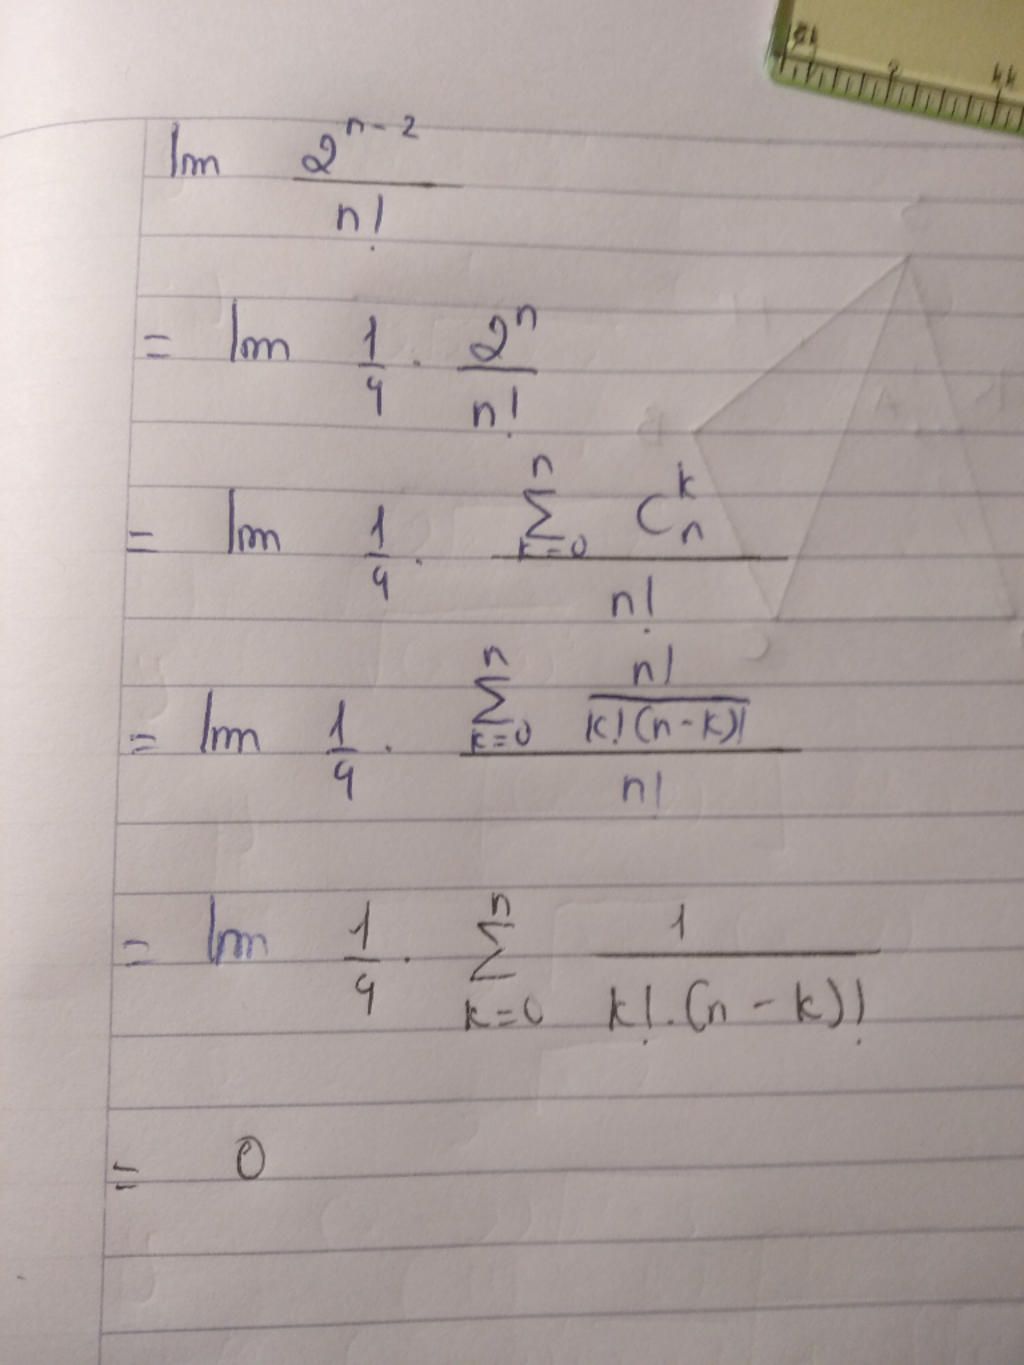 lim 2^{n-2} / n!
= lim 1/4 . 2^n / n!
= lim 1/4 . \sum_{k=0}^{n} C_n^k / n!
= lim 1/4 . \sum_{k=0}^{n} \frac{n!}{k!(n-k)!} / n!
= lim 1/4 . \sum_{k=0}^{n} \frac{1}{k!.(n-k)!}
= 0